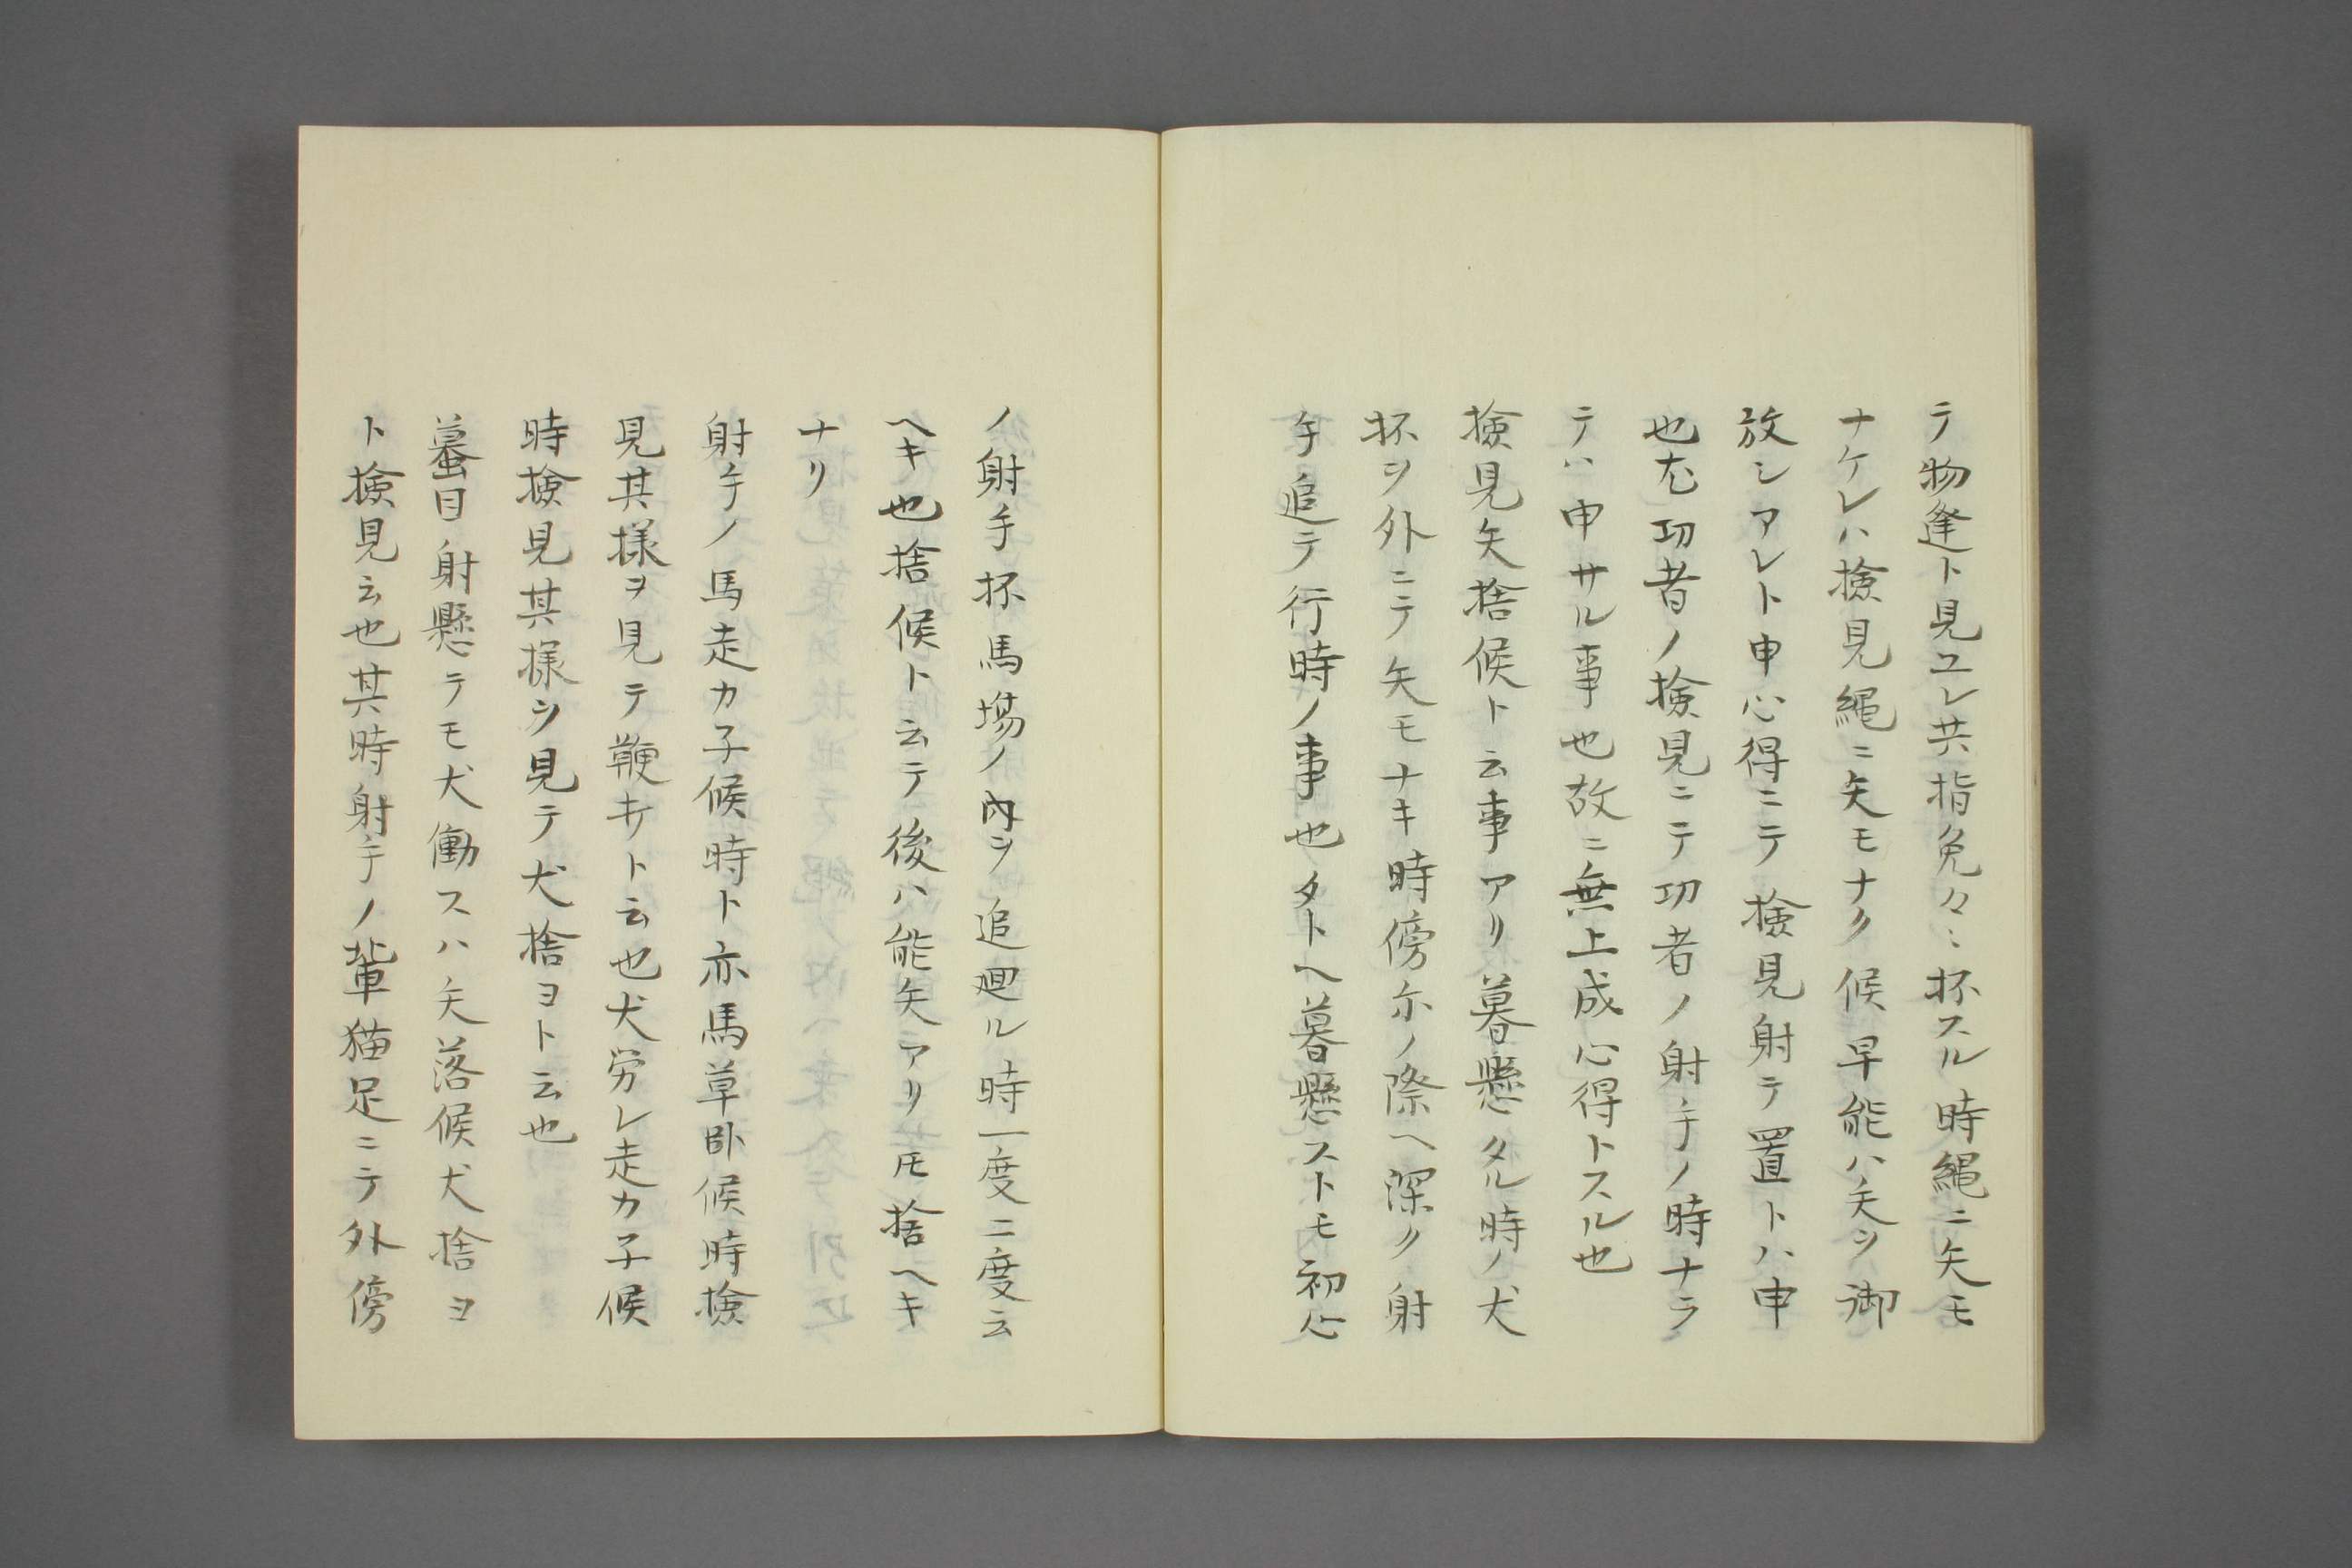 テ物逢ト見ユレ共指免々ミ抔スル時縄ニ矢モ
ナケレハ撿見縄ニ矢モナク候早能ハ矢ヲ御
放シアレト申心得ニテ撿見射テ置トハ申
也尤功者ノ撿見ニテ功者ノ射手ノ時ナラ
テハ申サル事也故ニ無上成心得トスル也
撿見矢捨候ト云事アリ暮懸タル時ノ犬
抔ヲ外ニテ矢モナキ時傍尓ノ際ヘ深ク射
手追テ行時ノ事也タトヘ暮懸ストモ初心
ノ射手抔馬場ノ内ヲ追廻ル時一度ニ度云
ヘキ也捨候ト云テ後ハ能矢アリ𪜈捨ヘキ
ナリ
射手ノ馬走カ子候時ト亦馬草臥候時撿
見其様ヲ見テ鞭ナト云也犬労レ走カ子候
時撿見其様ヲ見テ犬捨ヨト云也
蟇目射懸テモ犬働スハ矢落候犬捨ヨ
ト撿見云也其時射手ノ輩猫足ニテ外傍